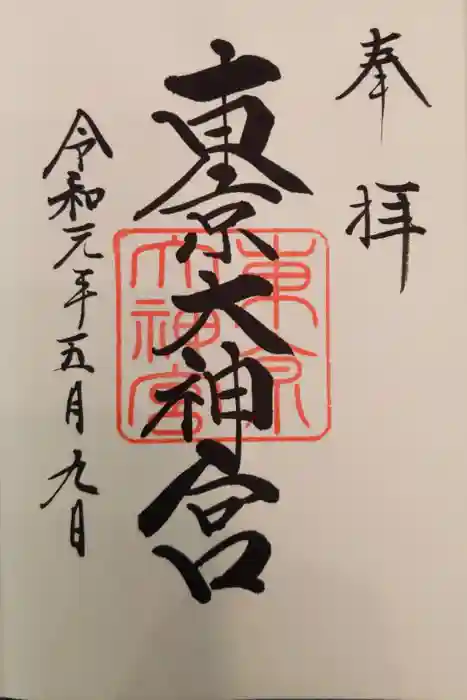 奉拝
東京大神宮
東京
大神宮
令和元年五月九日